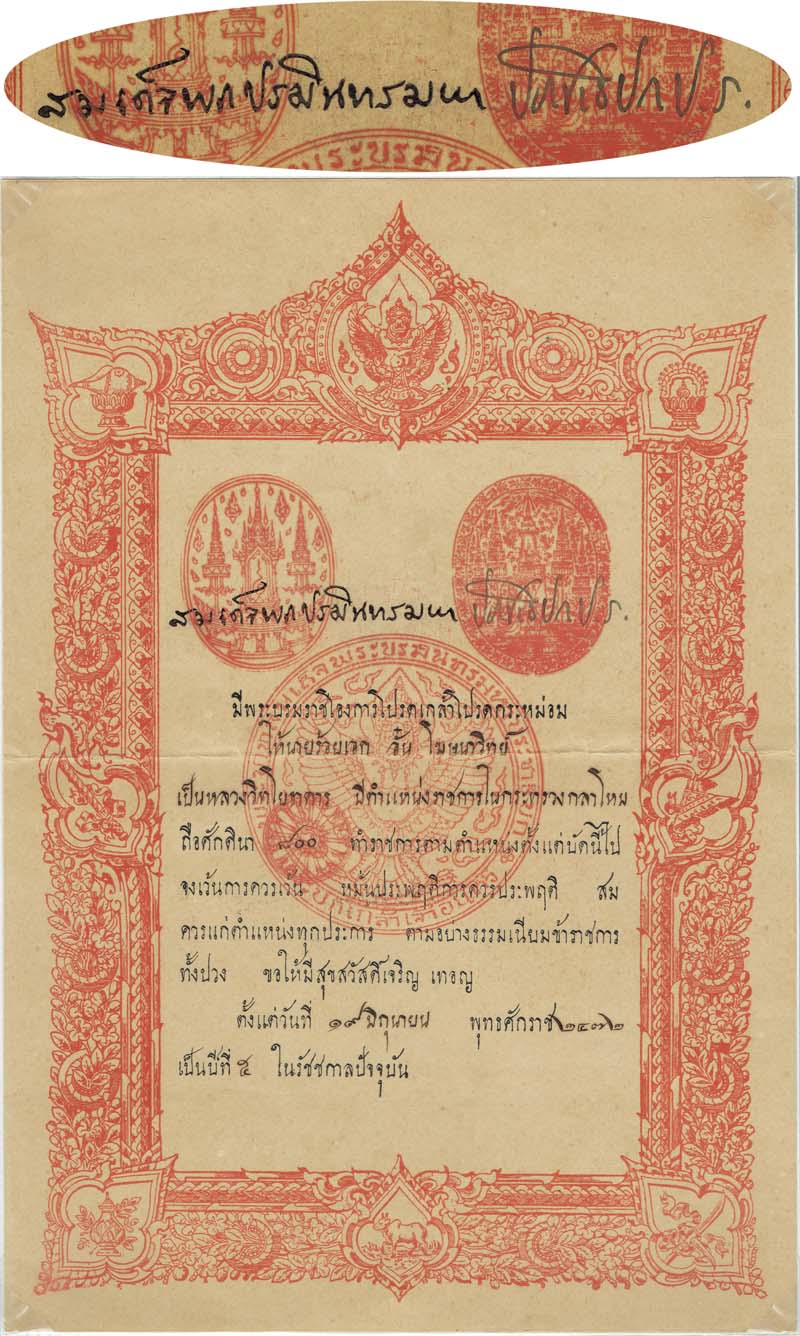 สมเด็จพระปรมินทรมหา ประชาธิปก ป.ร.
สมเด็จพระปรมินทรมหา ประชาธิปก ป.ร.
มีพระบรมราชโองการโปรดเกล้าโปรดกระหม่อม
ให้นายร้อยเอก
เป็นหลวง มีตำแหน่งราชการในกระทรวงกลาโหม
ถือศักดินา ๘๐๐ ทำราชการตามตำแหน่งตั้งแต่บัดนี้ไป
จงเว้นการควรเว้น หมั้นประพฤติการควรประพฤติ สม
ควรแก่ตำแหน่งทุกประการ ตามอย่างธรรมเนียมข้าราชการ
ทั้งปวง ขอให้มีสุขสวัสดิ์เจริญ เทอญ
ตั้งแต่วันที่ ๑๙ มิถุนายน พุทธศักราช ๒๔๗๒
เป็นปีที่ ๕ ในรัชชกาลปัจจุบัน